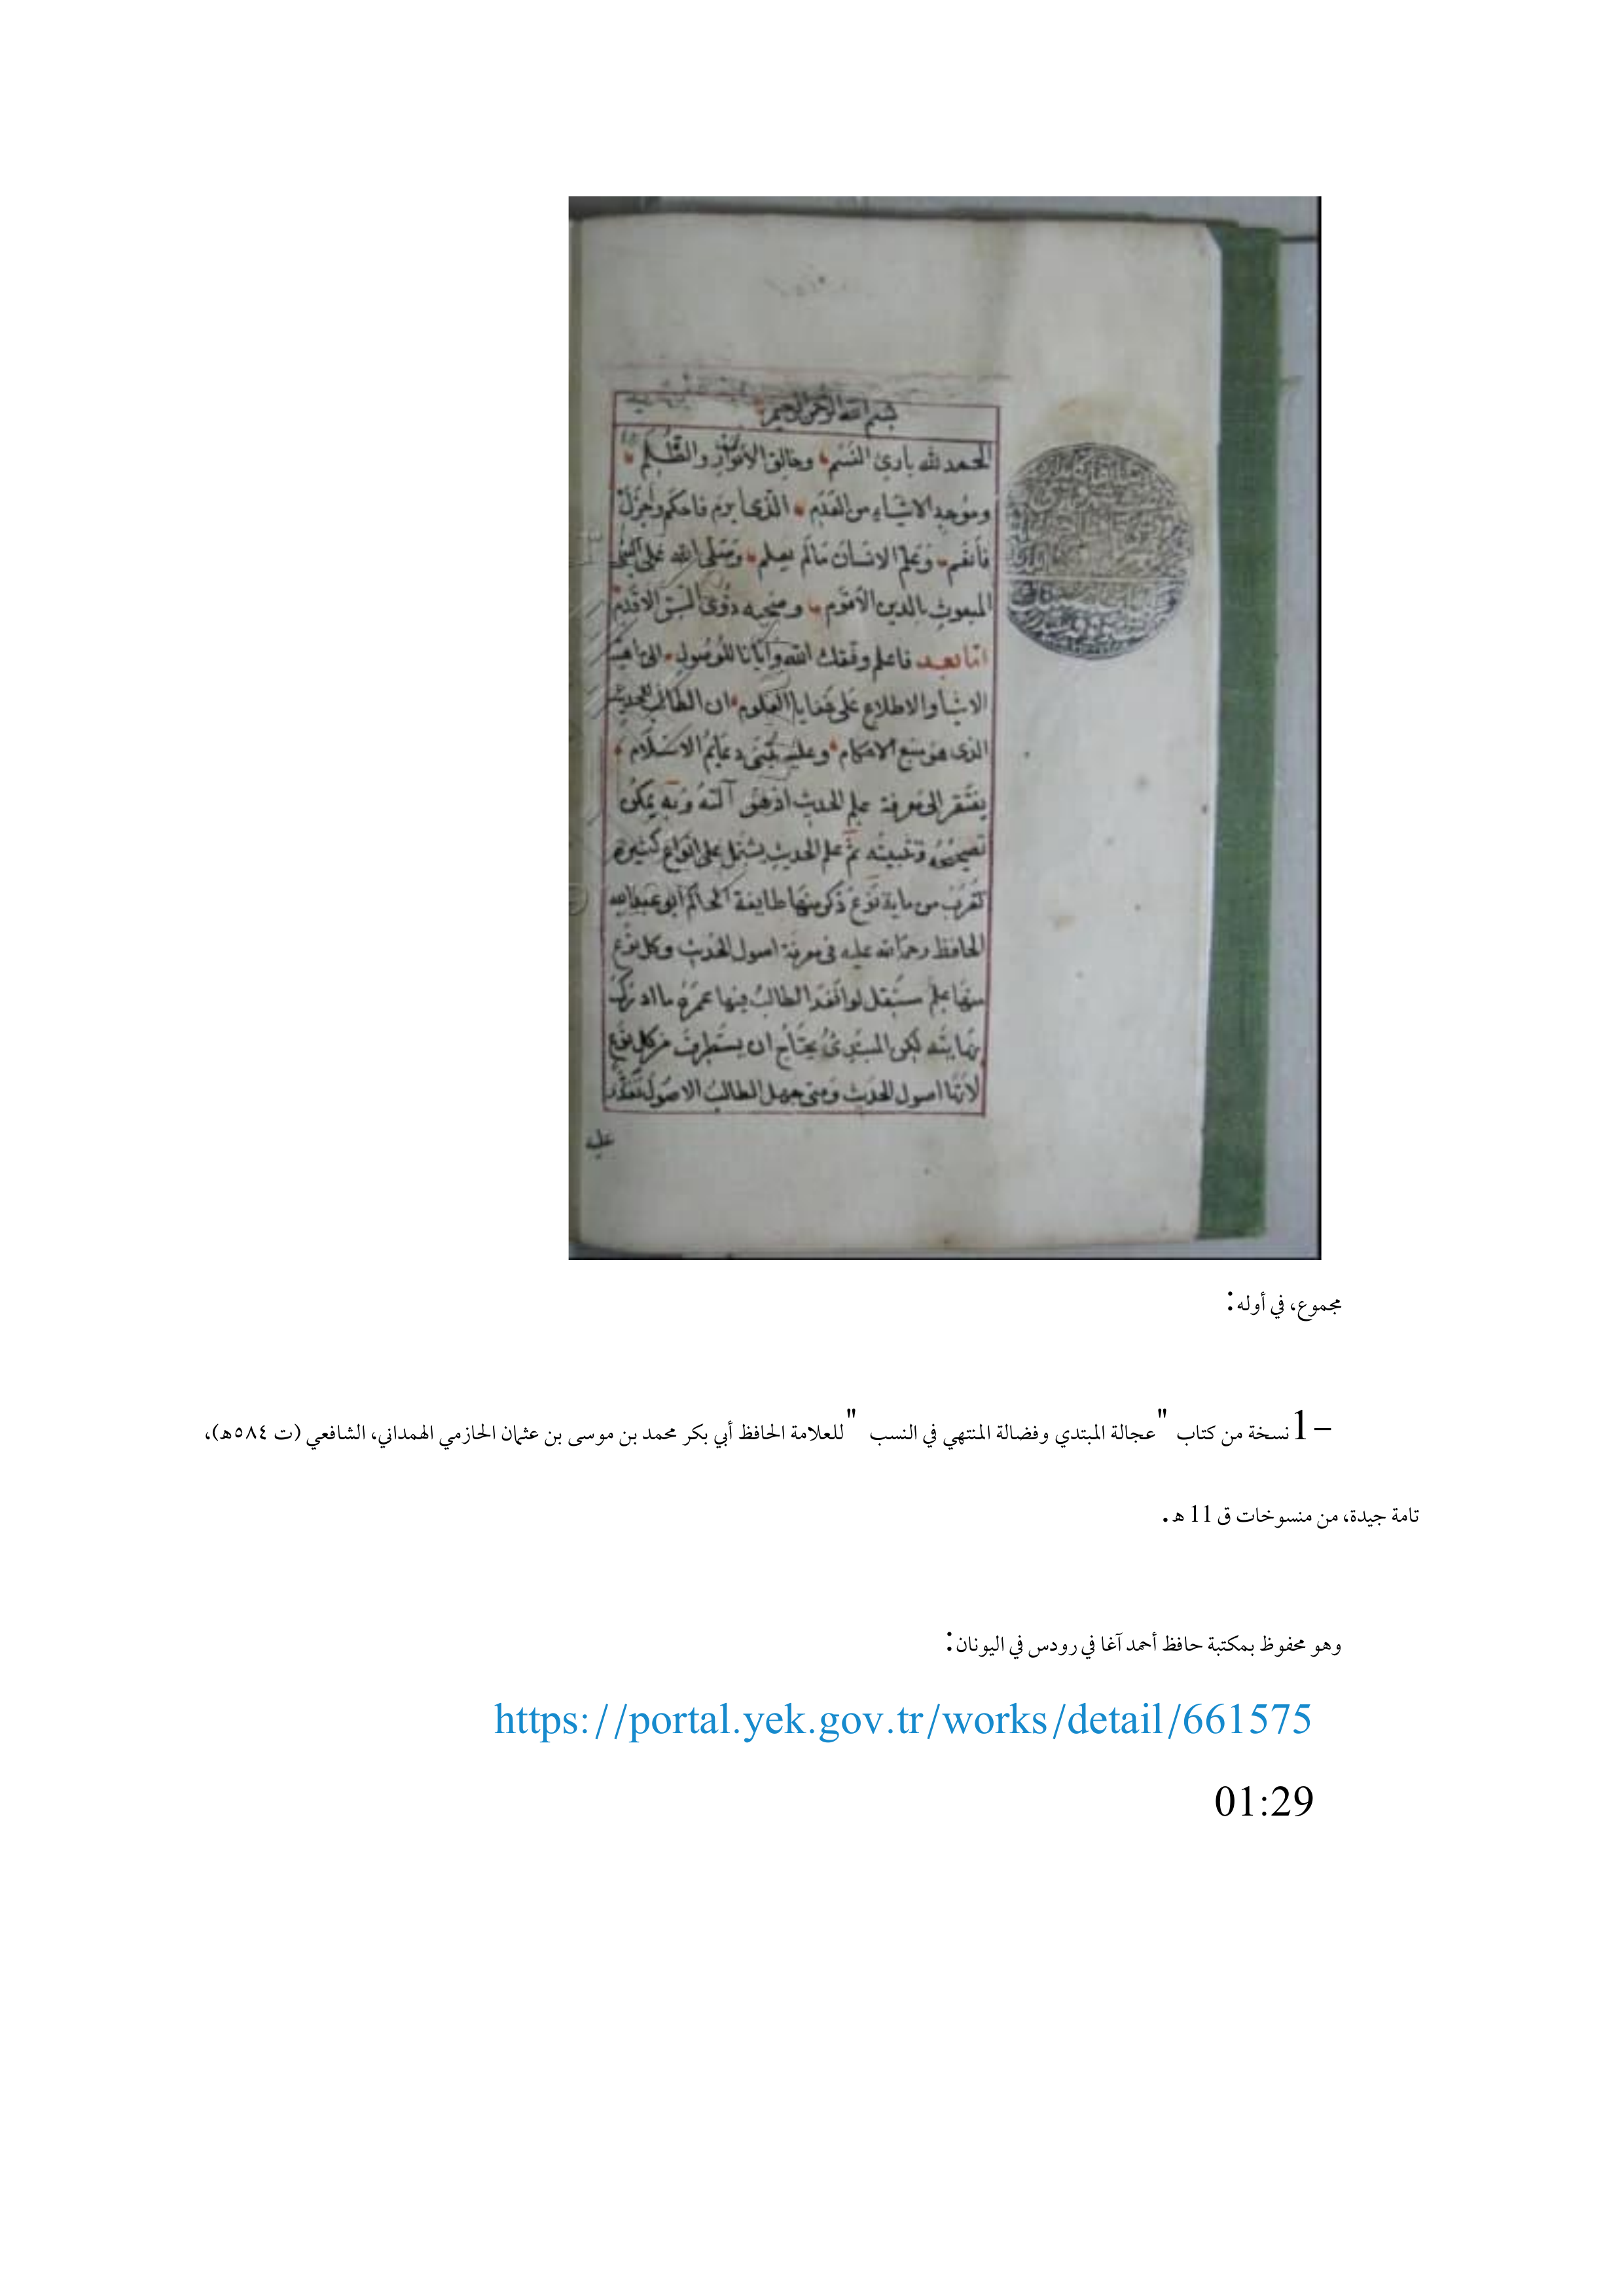 بسم الله الرحمن الرحيم
الحمد لله بارئ النسم وخالق الأنوار والظلم
وموجد الاشياء من العدم الذى ابرم فاحكم واجزل
فأنعم وعلم الانسان مالم يعلم وصلى الله على النبى
المبعوث بالدين الأقوم وصحبه ذوى السبق الاقدم
اما بعد فاعلم وفقك الله وايانا للوصول الى
الاشيا والاطلاع على خفايا العلوم ان الطالب للحديث
الذى هو منبع الاحكام وعليه تبتنى دعايم الاسلام
يفتقر الى معرفة علم الحديث اذ هو آلته وبه يمكن
تصحيحه ثم علم الحديث يشتمل على انواع كثيرة
تقرب من ماية نوع ذكر منها طايفة الحاكم ابو عبد الله
الحافظ رحمة الله عليه فى معرفة اصول الحديث وكل نوع
منها علم مستقل لو انفد الطالب فيها عمره ما ادرك
نهايته لكن المبتدئ يحتاج ان يستطرف من كل نوع
لأنها اصول الحديث ومتى جهل الطالب الاصول تعذر
عليه
مجموع، في أوله:
1– نسخة من كتاب "عجالة المبتدي وفضالة المنتهي في النسب " للعلامة الحافظ أبي بكر محمد بن موسى بن عثمان الحازمي الهمداني، الشافعي (ت ٥٨٤هـ)،
تامة جيدة، من منسوخات ق 11 هـ.
وهو محفوظ بمكتبة حافظ أحمد آغا في رودس في اليونان:
https://portal.yek.gov.tr/works/detail/661575
01:29